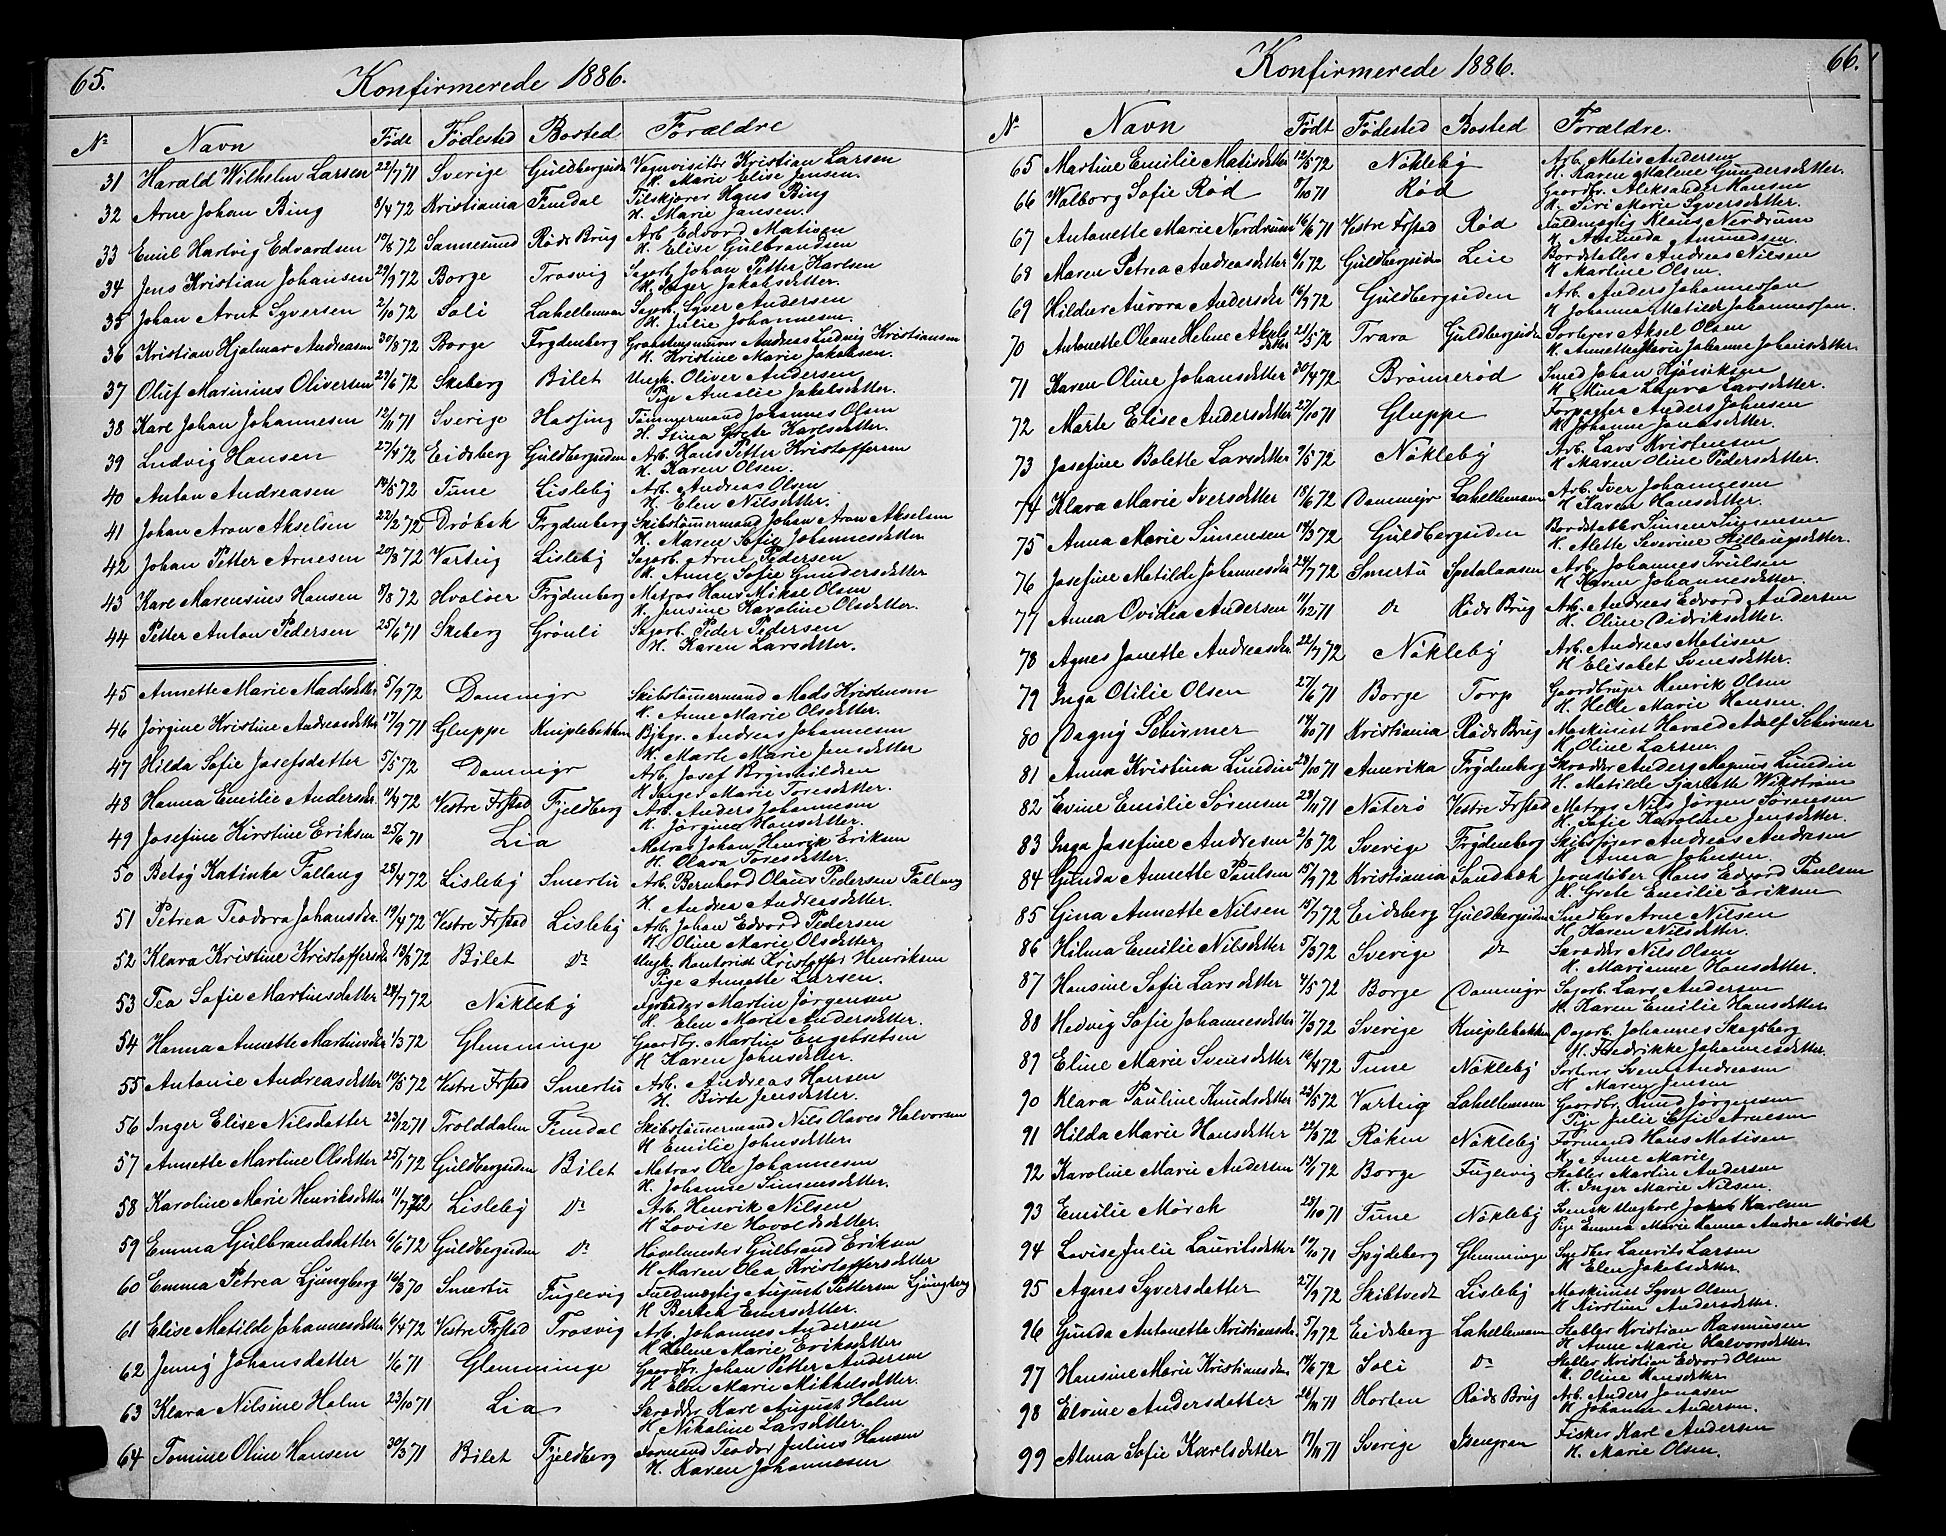 65.
Konfirmerede 1886.
No Navn Føde Fødested Bosted Forældre
31 Harald Wilhelm Larsen 22/7 71 Sverige Guldbergsiden Vognvisitør Kristian Larsen
H. Marie Elise Jensen.
32 Arne Johan Bing 8/4 72 Kristiania Femdal Tilskjærer Hans Bing
H. Marie Jansen.
33 Emil Hartvig Edvardsen 10/8 72 Sannesund Røds Brug Arb. Edvard Matisen
H. Elise Gulbrandsen
34 Jens Kristian Johansen 29/9 72 Borge Trosvig Sagarb. Johan Petter Karlsen
H. Inger Jakobsdetter.
35 Johan Arnt Syversen 2/10 72 Soli Lahellemoen Sagarb. Syver Andersen
H. Julie Johannesen.
36 Kristian Hjalmar Andreasen 30/8 72 Borge Frydenberg Graastensmurer Andreas Ludvig Kristiansen
H. Kristine Marie Jakobsen.
37 Oluf Marinius Oliversen 29/6 72 Skeberg Bilet Ungk. Oliver Andersen
Pige Amalie Jakobsdetter.
38 Karl Johan Johannesen 12/11 71 Sverige Hassing Tømmermand Johannes Olsen
H. Stina Grete Karlsdetter.
39 Ludvig Hansen 27/4 72 Eidsberg Guldbergsiden Arb. Hans Petter Kristoffersen
H. Karen Olsen.
40 Anton Andreasen 14/5 72 Tune Lisleby Arb. Andreas Olsen
H. Elen Nilsdetter.
41 Johan Aron Akselsen 22/2 72 Drøbak Frydenberg Skibstømmermand Johan Aron Akselsen
H. Maren Sofie Johannesdetter
42 Johan Petter Arnesen 20/3 72 Varteig Lisleby Sagarb. Arne Pedersen
H. Anne Sofie Gundersdetter
43 Karl Marensius Hansen 9/8 72 Hvaløer Frydenberg Matros Hans Mikal Olsen
H. Jensine Karoline Olsdetter.
44 Petter Anton Pedersen 25/6 71 Skeberg Grønli Sagarb. Peder Pedersen
H. Karen Larsdetter.
45 Annette Marie Madsdetter 5/9 72 Dammyr Skibstømmermand Mads Kristensen
H. Anne Marie Olsdetter.
46 Jørgine Kristine Andreasdetter 17/9 71 Gluppe Kniplebakken Bjbgr. Andreas Johannesen
H. Marte Marie Jensdetter
47 Hilda Sofie Josefsdetter 5/5 72 Dammyr Arb. Josef Brynhildsen
H. Inger Marie Toresdetter.
48 Hanna Emilie Andersdr. 11/4 72 Vestre Frstad Fjeldberg Arb. Anders Johannesen
H. Jørgine Hansdetter.
49 Josefine Kirstine Eriksen 25/6 71 Lia Matros Johan Henrik Eriksen
H. Olava Toresdetter.
50 Betsy Katinka Tallang 28/4 72 Lisleby Smertu Arb. Bernhard Olaus Pedersen Tallang
H. Andrea Andreasdetter.
51 Petrea Teodora Johansdr. 19/4 72 Vestre Frstad Lisleby Arb. Johan Edvard Pedersen
H. Oline Marie Olsdetter
52 Klara Kristine Kristoffersdr. 13/3 72 Bilet Do Ungk. Kontorist Kristoffer Henriksen
Pige Annette Larsen.
53 Tea Sofie Martinsdetter 24/7 72 Nøkleby Arbeider Martin Jørgensen
H. Elen Marie Andersdetter.
54 Hanna Annette Martinsdr. 1/3 72 Glemminge Gaardbr. Martin Engebretsen
H. Karen Johnsdetter.
55 Antonie Andreasdetter 10/5 72 Vestre Frstad Smertu Arb. Andreas Hansen
H. Birte Jensdetter.
56 Inger Elise Nilsdatter 23/12 71 Trolddalen Femdal Skibstømmermand Nils Olaves Halvorsen
H. Emilie Johnsdetter
57 Annette Martine Olsdetter 25/1 72 Guldbergsiden Bilet Matros Ole Johannesen
H. Johanne Simensdetter.
58 Karoline Marie Henriksdetter 11/7 72 Lisleby Do Arb. Henrik Nilsen
H Lovise Hovoldsdetter.
59 Emma Gulbrandsdatter 6/6 72 Guldbergsiden Do Høvelmester Gulbrand Eriksen
H Maren Olea Kristoffersdetter
60 Emma Petrea Ljungberg 16/3 70 Smertu Fuglevig Fuldmægtig August Pettersen Ljungberg
H Berthe Einersdetter.
61 Elise Matilde Johannesdetter 6/4 72 Vestre Frstad Trosvig Arb. Johannes Andersen
H Helene Marie Eriksdetter
62 Jenny Johansdatter 1/6 71 Glemminge Gaardbr. Johan Petter Andersen
H Elen Marie Mikkelsdetter.
63 Klara Nilsine Holm 23/10 71 Lia Skrædder Karl August Holm
H Nikoline Larsdetter.
64 Tomine Oline Hansen 30/3 71 Bilet Fjeldberg Formand Teodor Julius Hansen
H. Karen Johannesen
66.
Konfirmerede 1886.
No Navn Født Fødested Bosted Forældre.
65 Martine Emilie Matisdetter 12/5 72 Nøkleby Arb. Matis Andersen
H. Karen Malene Gundersdetter.
66 Walborg Sofie Rød 9/10 71 Rød Gaardbr. Aleksander Hansen
H. Siri Marie Syversdetter.
67 Antonette Marie Nordrum 16/6 71 Vestre Frstad Rød Fuldmægtig Klaus Nordrum
H Amunda Amundsen.
68 Maren Petrea Andreasdetter 6/1 72 Guldbergsiden Leie Bordstabler Andreas Nilsen
H Martine Olsen.
69 Hildur Aurora Andersdr 16/9 72 Guldbergsiden Arb. Anders Johannessen
H Johanna Matilde Johannessen.
70 Antonette Oleane Helene Akselsdetter 21/5 72 Trara Guldbergsiden Sorterer Aksel Olsen
H. Annette Marie Johanne Johansdetter.
71 Karen Oline Johansdetter 30/4 72 Brønnerød Smed Johan
H. Mina Laura Larsdetter.
72 Marte Elise Andersdetter 27/10 71 Gluppe Forpagter Anders Johnsen
H. Johanne Jonasdetter.
73 Josefine Bolette Larsdetter 9/5 72 Nøkleby Arb. Lars Kristensen
H Maren Oline Pedersdetter.
74 Klara Marie Iversdetter 18/6 72 Dammyr Lahellemoen Arb. Iver Johannesen
H Karen Hansdetter.
75 Anna Marie Simensen 14/3 72 Guldbergsiden Bordstabler Simen Simensen
H. Alette Severine Hellangsdetter.
76 Josefine Matilde Johannesdr 24/7 72 Smertu Spetalaasen Arb. Johannes Truelsen
H Karen Johannesdetter.
77 Anna Ovidia Andersen 11/12 71 Do Røds Brug Arb. Andreas Edvard Andersen
H. Oline Didriksdetter.
78 Agnes Janette Andreasdr. 22/7 72 Nøkleby Arb. Andreas Matisen
H Elisabet Svensdetter.
79 Inga Otilie Olsen 27/6 71 Borge Torp Gaardbruger Henrik Olsen
H. Helle Marie Hansen.
80 Dagny Schirmer 14/10 71 Kristiania Røds Brug Maskinist Harald Adolf Schirmer
H Oline Larsen.
81 Anna Kristina Lundin 23/10 71 Amerika Frydenberg Skrædder Anders Magnus Lundin
H. Matilde Sjarlotte Wikstrøm
82 Evine Emilie Sørensen 28/11 71 Nøterø Vestre Frstad Matros Nils Jørgen Sørensen
H. Sofie Karoline Jensdetter.
83 Inga Josefine Andresen 2/8 72 Sverige Frydenberg Skibsfører Andreas Andresen
H. Anna Johnsen.
84 Gunda Annette Paulsen 15/9 72 Kristiania Sandbæk Jernstøber Hans Edvard Paulsen
H. Grete Emilie Eriksen
85 Gina Annette Nilsen 15/7 72 Eidsberg Guldbergsiden Snedker Arne Nilsen
H Karen Nilsdetter.
86 Hilma Emilie Nilsdetter 5/3 72 Sverige Do Skrædder Nils Olsen
H. Marianne Hansdetter.
87 Hansine Sofie Larsdetter 4/5 72 Borge Dammyr Sagarb. Lars Andersen
H. Karen Emilie Hansdetter.
88 Hedvig Sofie Johannesdetter 7/3 72 Sverige Kniplebakken Dagarb. Johannes Skogsberg
H. Fredrikke Johannesdetter.
89 Eline Marie Svensdetter 16/4 72 Tune Nøkleby Sorterer Sven Andreasen
H Maren Jensen
90 Klara Pauline Knudsdetter 23/5 72 Varteig Lahellemoen Gaardbr. Knud Jørgensen
Pige Julie Sofie Arnesen
91 Hilda Marie Hansdetter 22/3 72 Røken Nøkleby Formand Hans Matisen
H. Anne Marie
92 Karoline Marie Andersen 19/1 72 Borge Fuglevig Stabler Martin Andersen
H. Inger Marie Nilsen.
93 Emilie Mørck 28/10 71 Tune Nøkleby Svensk Ungkarl Jakob Karlsen
Pige Emma Marie Hanna Andrea Mørck
94 Lovise Julie Lauritsdetter 19/10 71 Spydeberg Glemminge Snedker Laurits Larsen
H Elen Jakobsdetter.
95 Agnes Syversdetter 27/9 72 Skibtvedt Lisleby Maskinist Syver Olsen
H Kirstine Andersdetter.
96 Gunda Antonette Kristiansdr. 5/9 72 Eidsberg Lahellemoen Stabler Kristian Rasmusen
H Anne Marie Halvorsdetter
97 Hansine Marie Kristiansdr 14/6 72 Soli Do Stabler Kristian Edvard Olsen
H. Oline Hansdetter
98 Elvine Andersdatter 26/11 71 Horten Røds Brug Arb. Anders Jonasen
H Johanne Andersen.
99 Alma Sofie Karlsdetter 17/11 71 Sverige Isegran Fisker Karl Andersen
H. Marie Olsen.